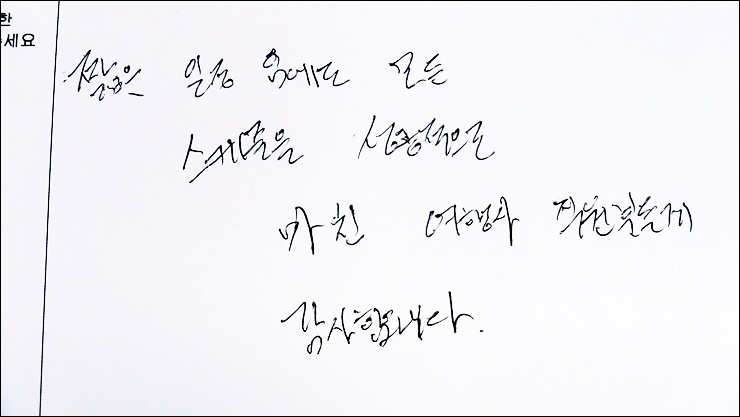 한
세요
짧은 일정 임에도 모든
스케쥴을 성공적으로
마친 여행사 직원분들께
감사합니다.